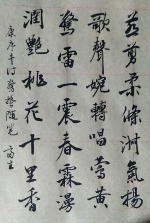 燕剪柔條淑氣揚
歌聲婉轉唱鶯黃
驚雷一震春霖
潤艷桃花十里香
驚蟄隨筆